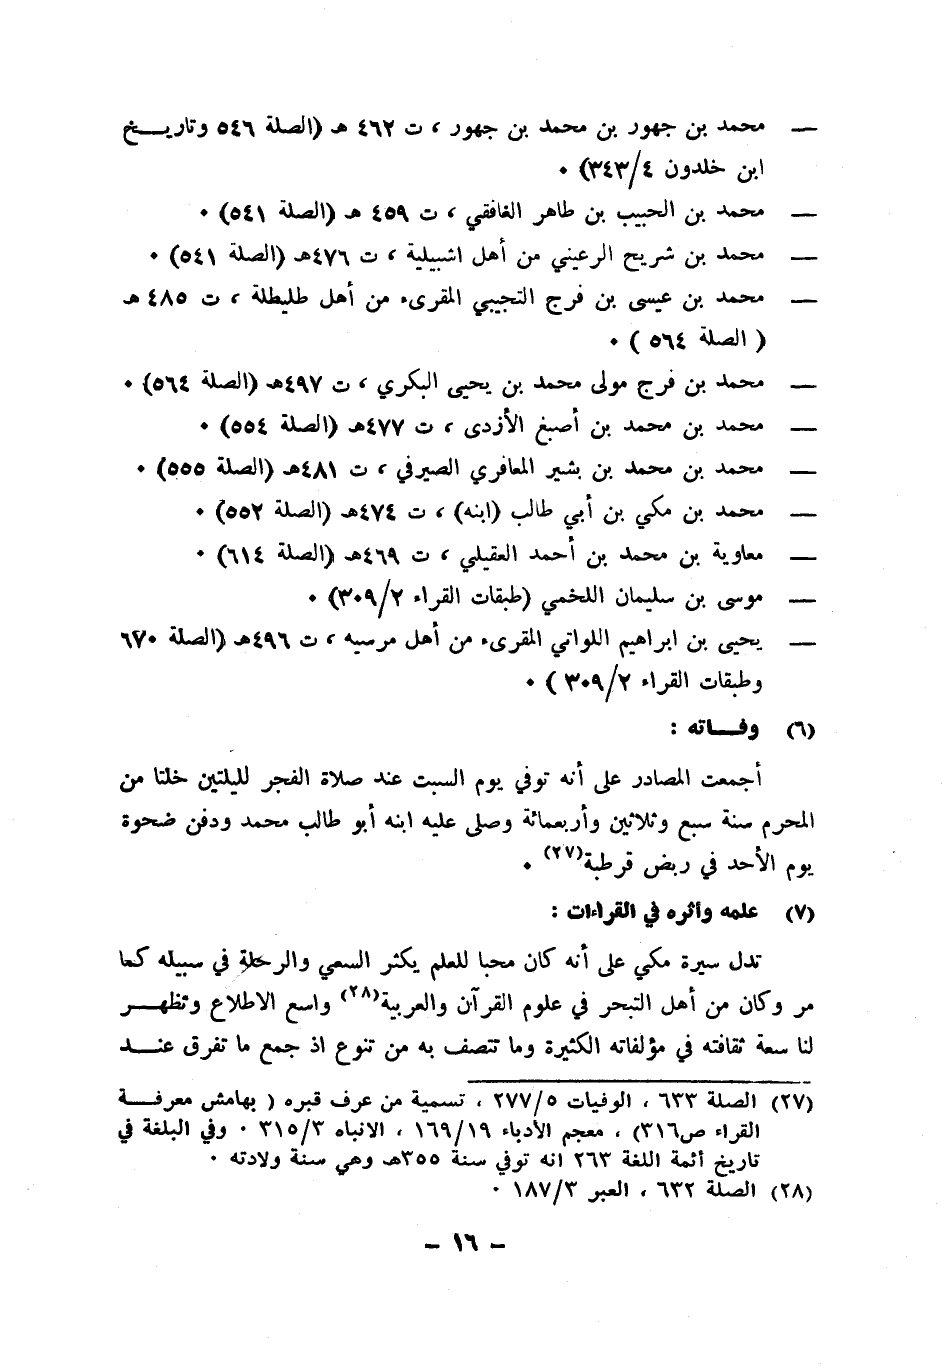 — محمد بن جهور بن محمد بن جهور ، ت ٤٦٢ هـ (الصلة ٥٤٦ وتاريخ
ابن خلدون ٣٤٣/٤) ٠
— محمد بن الحبيب بن طاهر الغافقي ، ت ٤٥٩ هـ (الصلة ٥٤١) ٠
— محمد بن شريح الرعيني من أهل اشبيلية ، ت ٤٧٦هـ (الصلة ٥٤١) ٠
— محمد بن عيسى بن فرج التجيبي المقرىء من أهل طليطلة ، ت ٤٨٥ هـ
( الصلة ٥٦٤ ) ٠
— محمد بن فرج مولى محمد بن يحيى البكري ، ت ٤٩٧هـ (الصلة ٥٦٤) ٠
— محمد بن محمد بن أصبغ الأزدى ، ت ٤٧٧هـ (الصلة ٥٥٤) ٠
— محمد بن محمد بن بشير المعافري الصيرفي ، ت ٤٨١هـ (الصلة ٥٥٥) ٠
— محمد بن مكي بن أبي طالب (ابنه) ، ت ٤٧٤هـ (الصلة ٥٥٢) ٠
— معاوية بن محمد بن أحمد العقيلي ، ت ٤٦٩هـ (الصلة ٦١٤) ٠
— موسى بن سليمان اللخمي (طبقات القراء ٣٠٩/٢) ٠
— يحيى بن ابراهيم اللواتي المقرىء من أهل مرسيه ، ت ٤٩٦هـ (الصلة ٦٧٠
وطبقات القراء ٣٠٩/٢ ) ٠
(٦) وفاته :
أجمعت المصادر على أنه توفي يوم السبت عند صلاة الفجر لليلتين خلتا من
المحرم سنة سبع وثلاثين وأربعمائة وصلى عليه ابنه أبو طالب محمد ودفن ضحوة
يوم الأحد في ربض قرطبة(٢٧) ٠
(٧) علمه وأثره في القراءات :
تدل سيرة مكي على أنه كان محبا للعلم يكثر السعي والرحلة في سبيله كما
مر وكان من أهل التبحر في علوم القرآن والعربية(٢٨) واسع الاطلاع وتظهر
لنا سعة ثقافته في مؤلفاته الكثيرة وما تتصف به من تنوع اذ جمع ما تفرق عند
(٢٧) الصلة ٦٣٣ ، الوفيات ٢٧٧/٥ ، تسمية من عرف قبره ( بهامش معرفة
القراء ص٣١٦) ، معجم الأدباء ١٦٩/١٩ ، الانباه ٣١٥/٣ ٠ وفي البلغة في
تاريخ أئمة اللغة ٢٦٣ انه توفي سنة ٣٥٥هـ وهي سنة ولادته ٠
(٢٨) الصلة ٦٣٢ ، العبر ١٨٧/٣ ٠
– ١٦ –